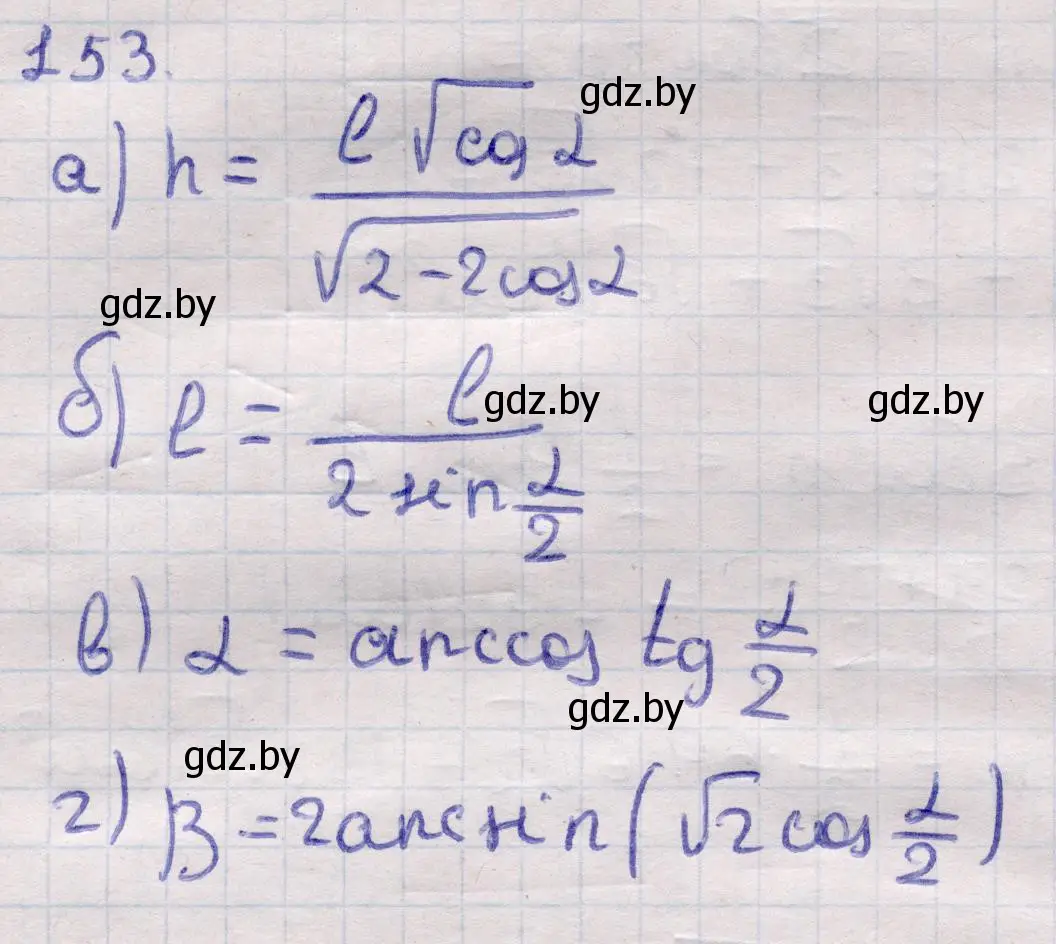 153.
gdz.by
а) h = ℓ√cos α / √2 - 2cos α
gdz.by
б) ℓ = ℓ / 2 sin α/2
gdz.by
gdz.by
в) α = arccos tg α/2
gdz.by
gdz.by
г) β = 2arcsin(√2 cos α/2)